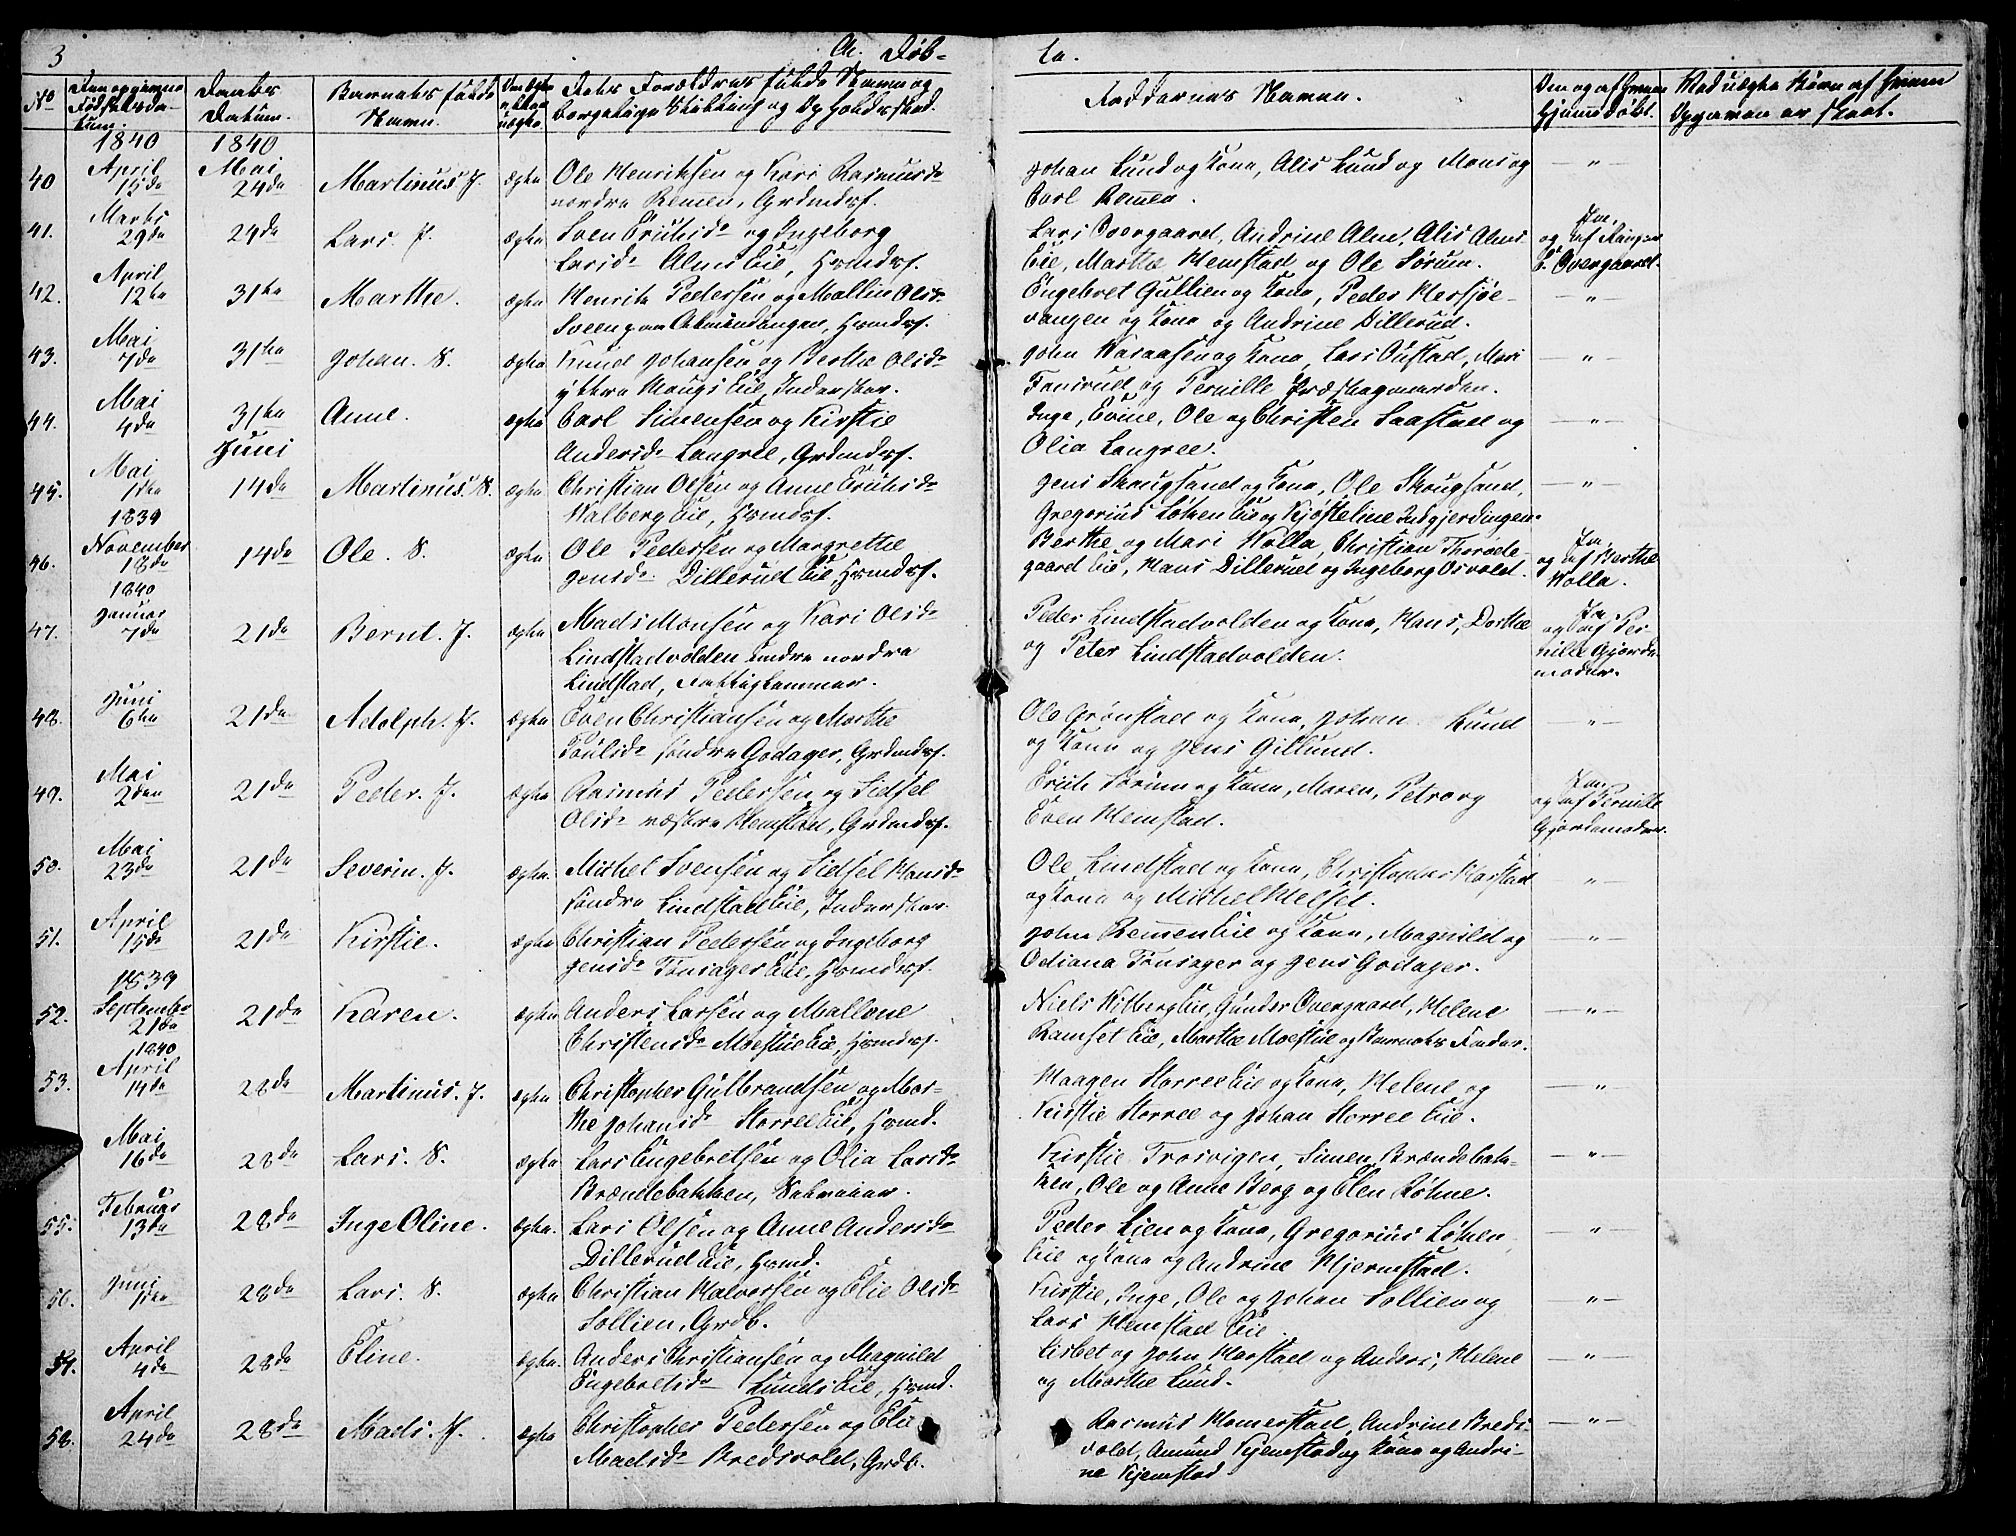 3
A. Døb-
te.
No
Den opgivne
Fødselsda-
tum.
Daabs
Datum.
Barnets fulde
Navn.
Om ægte
eller
uægte
Dets Forældres fulde Navne og
borgerlige Stilling og Opholdssted.
Faddernes Navne.
Om og af hvem
hjemmedøbt.
Ved uægte Børn af hvem
Opgaven er skeet.
1840
1840
40
April
15de
Mai
24de
Martinus. J.
ægte
Ole Henriksen og Kari Rasmusd.
nordre Remen, Grdmdsf.
Johan Lund og Kone, Alis Lund og Mons og
Carl Remen.
— " —
41.
Marts
29de
24de
Lars. J.
ægte
Sven Erichsd. og Ingeborg
Larsd. Alms Eie, Hsmdsf.
Lars Overgaard, Andrine Alm, Alis Alms
Eie, Marthe Hemstad og Ole Sørum.
Ja,
og af
E. Overgaard.
42.
April
12te
31te
Marthe.
ægte
Henrik Pedersen og Mallin Olsd.
Sveen paa Almindingen, Hsmdsf.
Engebret Gullien og Kone, Peder Mersjøe-
vangen og Kone og Andrine Dillerud.
— " —
43.
Mai
7de
31te
Johan. S.
ægte
Knud Johansen og Berthe Olsd.
yttre Hougs Eie, Inderster.
John Karaasen og Kone, Lars Oustad, Mari
Fonsrud og Pernille Præstegaarden.
— " —
44.
Mai
4de
31te
Anne.
ægte
Carl Simensen og Kirstie
Andersd. Langree, Grdmdsf.
Inge, Evine, Ole og Christen Saastad og
Olia Langree.
— " —
45.
Mai
1ste
Juni
14de
Martinus. S.
ægte
Christian Olsen og Anne Erichsd.
Valberg Eie, Hsmdsf.
Jens Skougsand og Kone, Ole Skougsand,
Gregorius Løken Eie og Kjøsteline Indgjerdingen.
— " —
1839
46.
November
18de
14de
Ole. S.
ægte
Ole Pedersen og Margrethe
Jensd. Dillerud Eie, Hsmdsf.
Berthe og Mari Volla, Christian Thorde-
gaard Eie, Hans Dillerud og Ingeborg Osvold.
Ja,
og af Berthe
Volla.
1840
47.
Januar
7de
21de
Bernt. J.
ægte
Mads Monsen og Kari Olsd.
Lindstadvolden under nordre
Lindstad, Fattiglemmer.
Peder Lindstadvolden og Kone, Hans, Dorthe
og Peter Lindstadvolden.
Ja,
og af Per-
nille Gjorde-
moder.
48.
Juni
6te
21de
Adolph. J.
ægte
Even Christiansen og Marthe
Poulsd. søndre Godager, Grdmdsf.
Ole Grønstad og Kone, Johan Lund
og Kone og Jens Gillund.
— " —
49.
Mai
2den
21de
Peder. J.
ægte
Rasmus Pedersen og Sidsel
Olsd. vestre Hemstad, Grdmdsf.
Erich Sørum og Kone, Maren, Petro og
Even Hemstad.
Ja,
og af Pernille
Gjordemoder.
50.
Mai
23de
21de
Severin. J.
ægte
Michel Svensen og Sidsel Hansd.
søndre Lindstad Eie, Inderster.
Ole Lindstad og Kone, Christopher Karstad
og Kone og Michel Melset.
— " —
51.
April
15de
21de
Kirstie.
ægte
Christian Pedersen og Ingeborg
Jensd. Tønsager Eie, Hsmdsf.
John Remen Eie og Kone, Magnild og
Odiana Tønsager og Jens Godager.
— " —
1839
52.
September
21de
21de
Karen.
ægte
Anders Larsen og Mallene
Christensd. Moestue Eie, Hsmdsf.
Niels Vilberg Eie, Gunder Overgaard, Helene
Ramset Eie, Marthe Moestue og Barnets Fader.
— " —
1840
53.
April
14de
28de
Martinus. J.
ægte
Christopher Gulbrandsen og Mar-
the Johansd. Storree Eie, Hsmd.
Haagen Storree Eie og Kone, Helene og
Kirstie Storree og Johan Storree Eie.
— " —
Mai
16de
28de
Lars. S.
ægte
Lars Engebretsen og Olia Larsd.
Brændebakken,
Kirstie Trosvigen, Simen Brændebak-
ken, Ole og Anne Berg og Elen Røhne.
— " —
55.
Februar
13de
28de
Inge Oline.
ægte.
Lars Olsen og Anne Andersd.
Dillerud Eie, Hsmd.
Peder Lien og Kone, Gregorius Løken
Eie og Kone og Andrine Hjernstad.
— " —
56.
Juni
1ste
28de
Lars. S.
ægte
Christian Halvorsen og Elie Olsd.
Sollien, Grdb.
Kirstie, Inge, Ole og Johan Sollien og
Lars Hemstad Eie.
— " —
57.
April
4de
28de
Eline.
ægte.
Anders Christiansen og Magnild
Engebretsd. Lunds Eie, Hsmd.
Lisbet og John Harstad og Anders, Helene
og Marthe Lund.
— " —
58.
April
24de
28de
Mads. J.
ægte
Christopher Pedersen og Eli
Madsd. Bredsvold, Grdb.
Rasmus Hemerstad, Andrine Breds-
vold, Amund Kjemstad og Kone og Andri-
ne Kjemstad
— " —